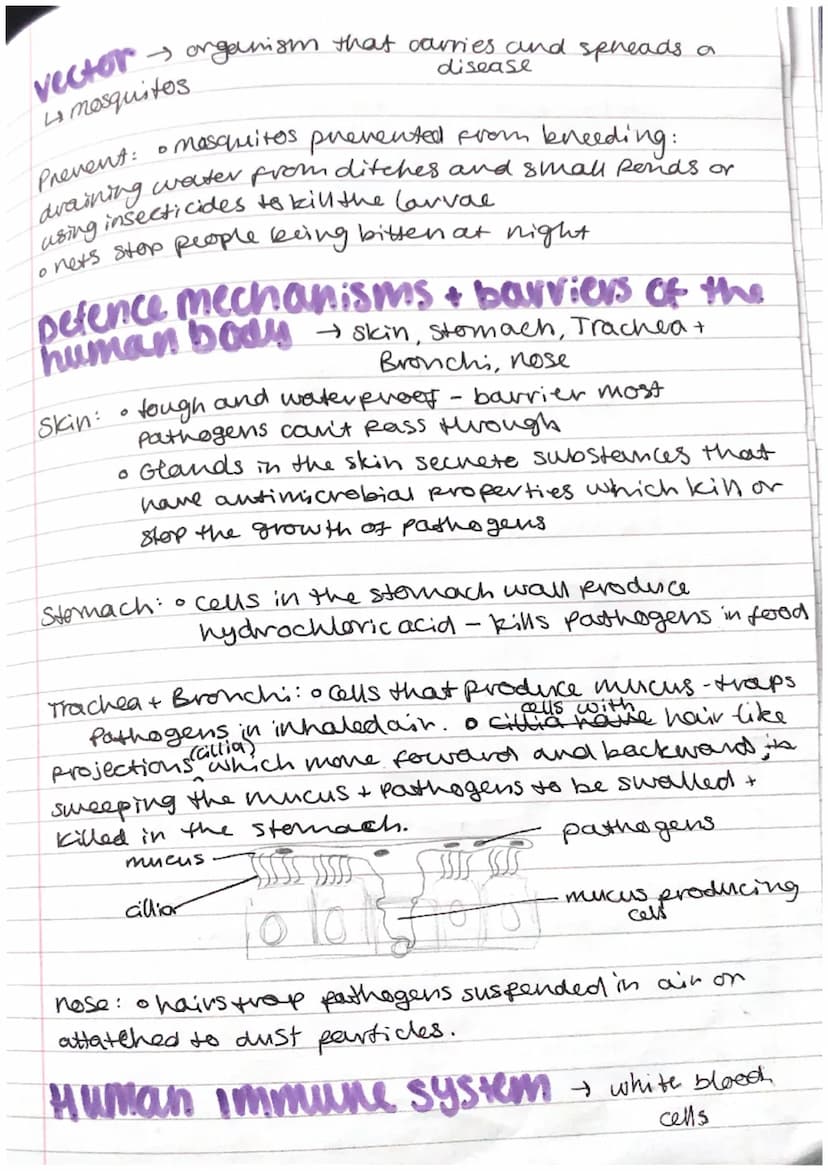 vector → organism that carries and spreads a
disease
↳ mosquitos
Prevent: • mosquitos prevented from breeding:
draining water from ditches and small ponds or
using insecticides to kill the larvae
• nets stop people being bitten at night
Defence mechanisms + barriers of the
human body → skin, stomach, Trachea +
Bronchi, nose
Skin: • tough and waterproof - barrier most
pathogens can't pass through
• Glands in the skin secrete substances that
have antimicrobial properties which kill or
stop the growth of pathogens
Stomach: • cells in the stomach wall produce
hydrochloric acid - kills pathogens in food
Trachea + Bronchi: • cells that produce mucus - traps
pathogens in inhaled air. • cillia have cells with hair like
projections (cillia) which move forward and backward,
sweeping the mucus + pathogens to be swalled +
killed in the stomach.
mucus
pathogens
cillia
mucus producing
cell
nose: • hairs trap pathogens suspended in air or
attatched to dust particles.
Human immune system → white blood
cells